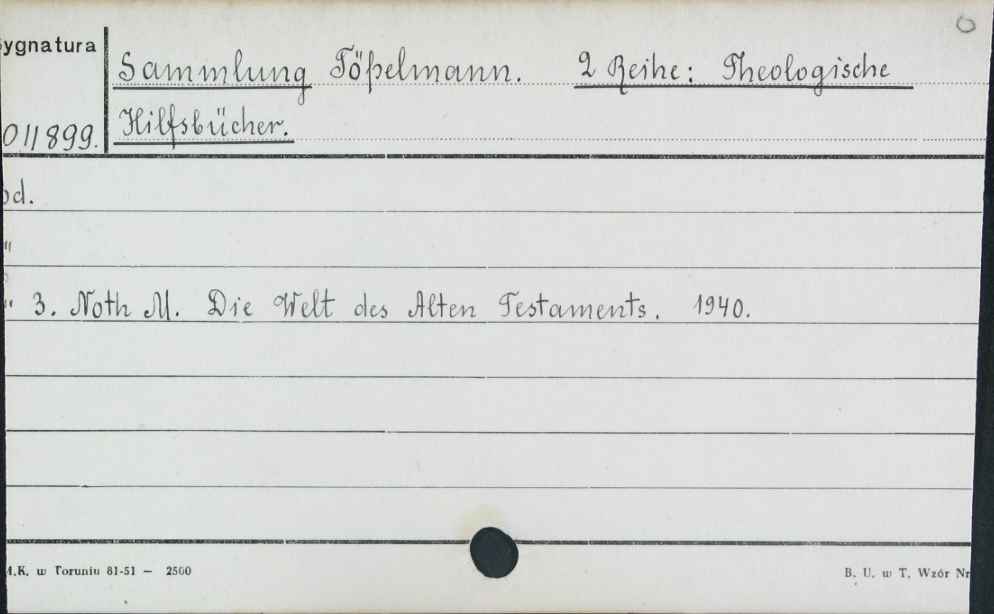 ygnatura
Sammlung Töpelmann. 2 Reihe: Theologische
011899. Hilfsbücher.
bd.
"
" 3. Noth M. Die Welt des Alten Testaments. 1940.
.K. w Toruniu 81-51 — 2500
B. U. w T. Wzór Nr